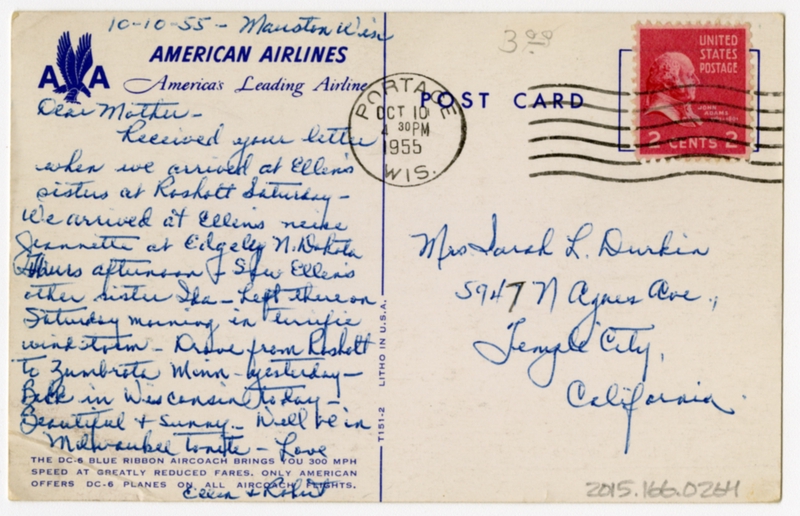 10-10-55 - Mauston Wis
AMERICAN AIRLINES
A A
America's Leading Airline
Dear Mother -
Received your letter
when we arrived at Ellen's
sisters at Rosholt Saturday -
We arrived at Ellens neice
Jeannette at Edgeley N. Dakota
Thurs afternoon & saw Ellen's
other sister Ida - Left there on
Saturday morning in terrific
wind storm - Drove from Rosholt
to Zumbrota Minn - yesterday -
Back in Wisconsin today -
Beautiful & Sunny - Will be in
Milwaukee tonite - Love
Ellen & Robert
THE DC-6 BLUE RIBBON AIRCOACH BRINGS YOU 300 MPH
SPEED AT GREATLY REDUCED FARES. ONLY AMERICAN
OFFERS DC-6 PLANES ON ALL AIRCOACH FLIGHTS.
T151-2 LITHO IN U.S.A.
3.00
POST CARD
PORTAGE
OCT 10
4 30 PM
1955
WIS.
UNITED
STATES
POSTAGE
JOHN
ADAMS
2 CENTS 2
Mrs Sarah L. Durkin
5947 N Agnes Ave.,
Temple City,
California.
2015.166.0264